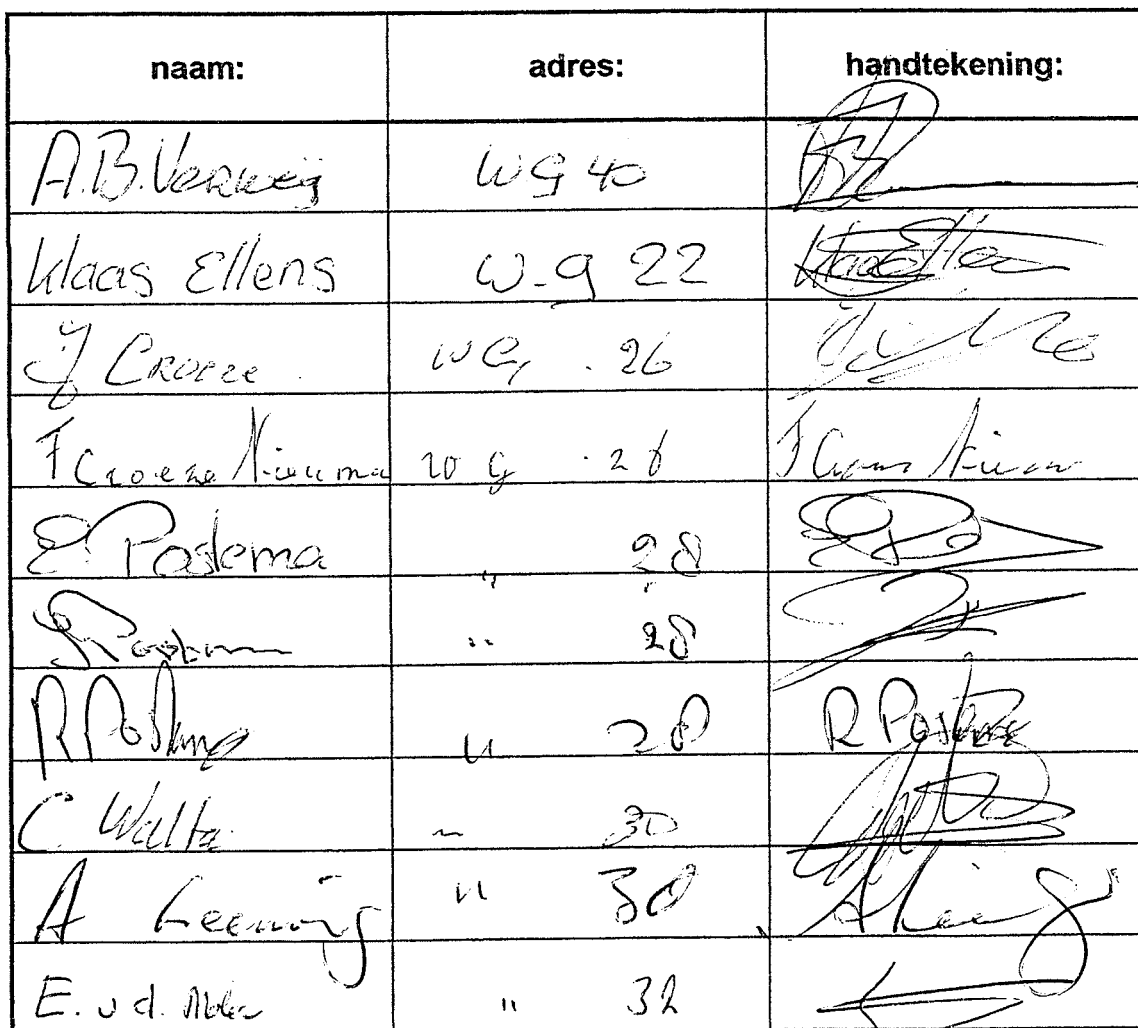 naam: adres: handtekening:
A.B. Verweij WG 40
Klaas Ellens W-g 22 Klaas Ellens
J Croeze. WG. 26
F Croeze Nieuma WG. 26
E. Postema " 28
Postema " 28
R Postema " 28 R Postema
C. Walta " 30
A Leening " 30 A Leening
E. v d. " 32